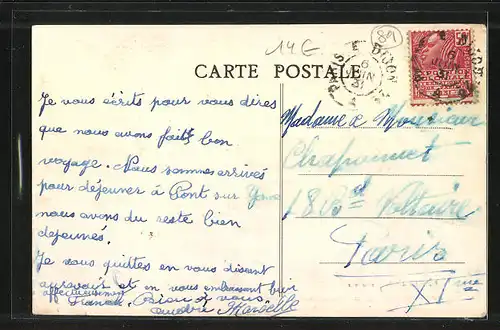 14€
CARTE POSTALE
PARIS E DIJON
6
JUIN
31
50c
Je vous écrits pour vous dires
que nous avons faits bon
voyage. Nous sommes arrivés
pour déjeuner à Pont sur Yonne
nous avons du reste bien
déjeunés.
Je vous quittes en vous disant
aurevoir et en vous embrassant bien
affectueusement
Bien à vous
Marcelle
Madame & Monsieur
Chaponnet
18 Bd Voltaire
Paris
XIème